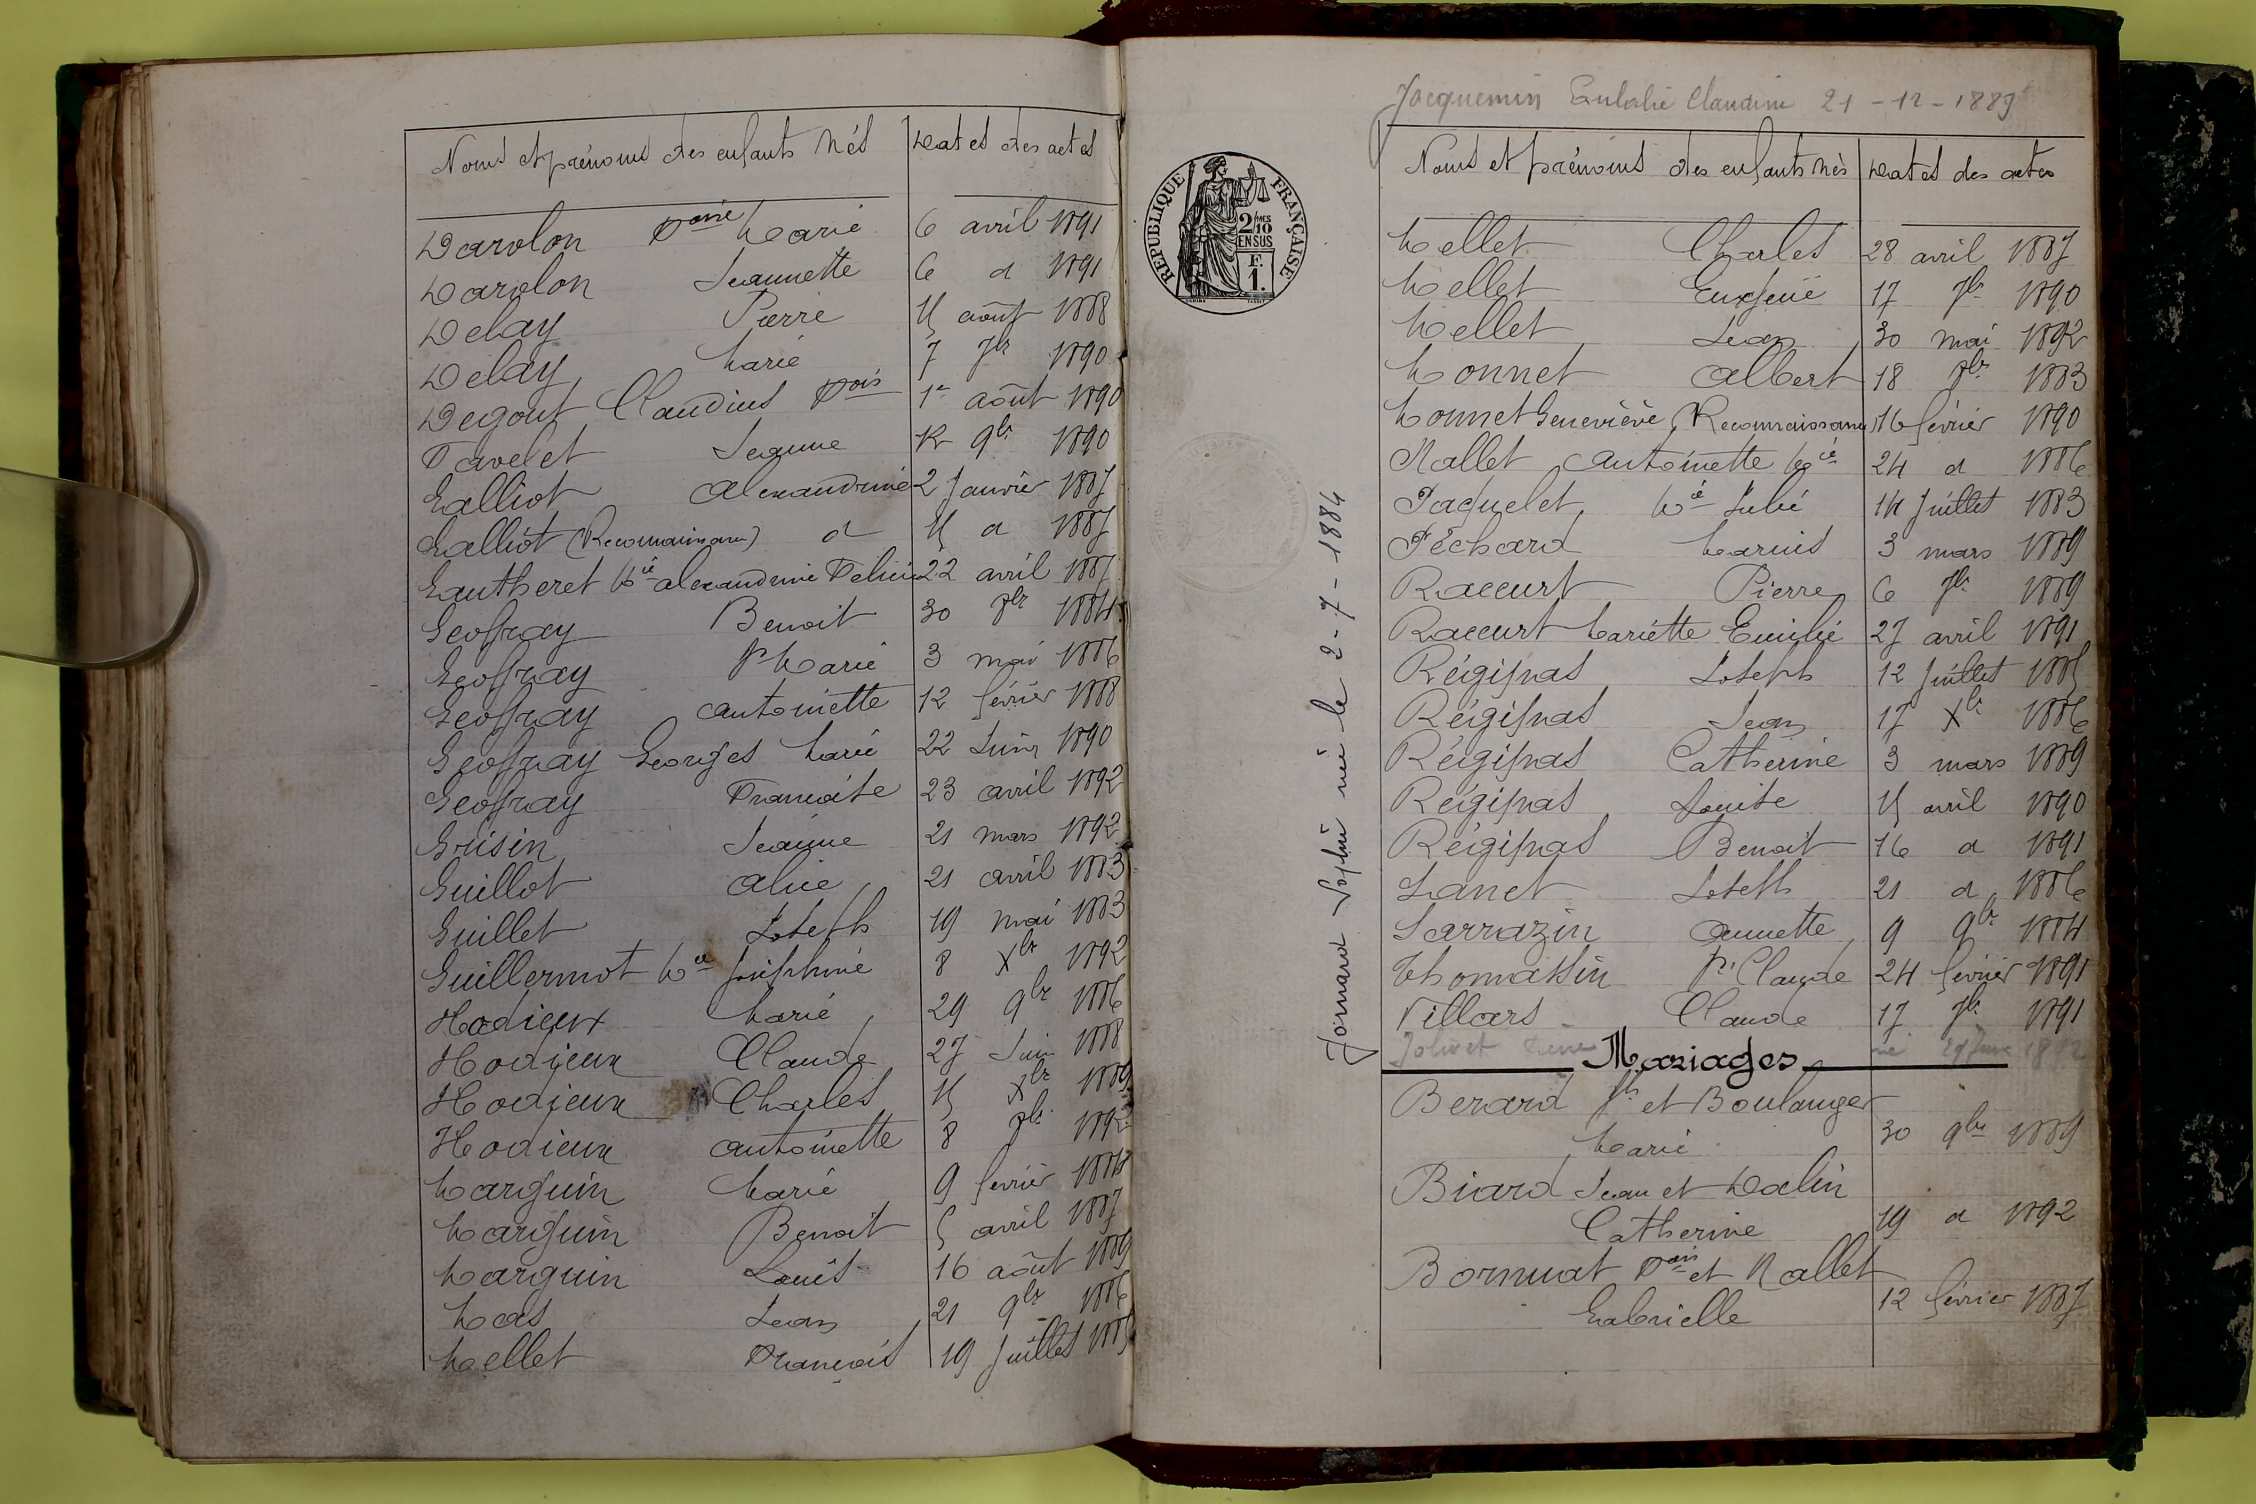 Noms et prénoms des enfants nés
Dates des actes
Darolon Fçoise Marie 6 avril 1891
Darolon Jeannette 6 d 1891
Delay Pierre 15 août 1888
Delay Marie 7 7br 1890
Degout Claudius Fçois 1er août 1890
Favelet Jeanne 12 9br 1890
Galliot Alexandrine 2 Janvier 1887
Galliot (Reconnaissance) d 15 d 1887
Gautheret Mie Alexandrine Félicie 22 avril 1887
Geoffray Benoit 30 8br 1884
Geoffray Pre Marie 3 mai 1886
Geoffray Antoinette 12 février 1888
Geoffray Georges Marie 22 Juin 1890
Geoffray Françoise 23 avril 1892
Grisin Jeanne 21 mars 1892
Guillot Alice 21 avril 1883
Guillet Joseph 19 mai 1883
Guillermot Mie Joséphine 8 Xbr 1892
Hodieux Marie 29 9br 1886
Hodieux Claude 27 Juin 1888
Hodieux Charles 15 Xbr 1889
Hodieux Antoinette 8 8br 1892
Marguin Marie 9 février 1884
Marguin Benoit 5 avril 1887
Marguin Louis 16 août 1889
Mas Jean 21 9br 1886
Mellet François 19 Juillet 1885
REPUBLIQUE FRANÇAISE
2/10 MES
EN SUS
F.
1.
Jomard Sophie née le 2-7-1884
Jacquemin Eulalie Claudine 21-12-1889
Noms et prénoms des enfants nés
Dates des actes
Mellet Charles 28 avril 1887
Mellet Eugène 17 7br 1890
Mellet Jean 30 mai 1892
Monnet Albert 18 8br 1883
Monnet Geneviève (Reconnaissance 16 février 1890
Nallet Antoinette Mie 24 d 1886
Paquelet Mie Julie 14 Juillet 1883
Péchard Marius 3 mars 1889
Raccurt Pierre 6 7br 1889
Raccurt Mariette Emilie 27 avril 1891
Régipas Joseph 12 Juillet 1885
Régipas Jean 17 Xbr 1886
Régipas Catherine 3 mars 1889
Régipas Louise 15 avril 1890
Régipas Benoit 16 d 1891
Sanet Joseph 21 d 1886
Sarrazin Annette 9 9br 1884
Thomassin Pre Claude 24 février 1891
Villars Claude 17 7br 1891
Jolivet né
Mariages
Berard Jh et Boulanger
Marie 30 9bre 1889
Biard Jean et Dalin
Catherine 19 d 1892
Bornuat Fçois et Nallet
Gabrielle 12 février 1887